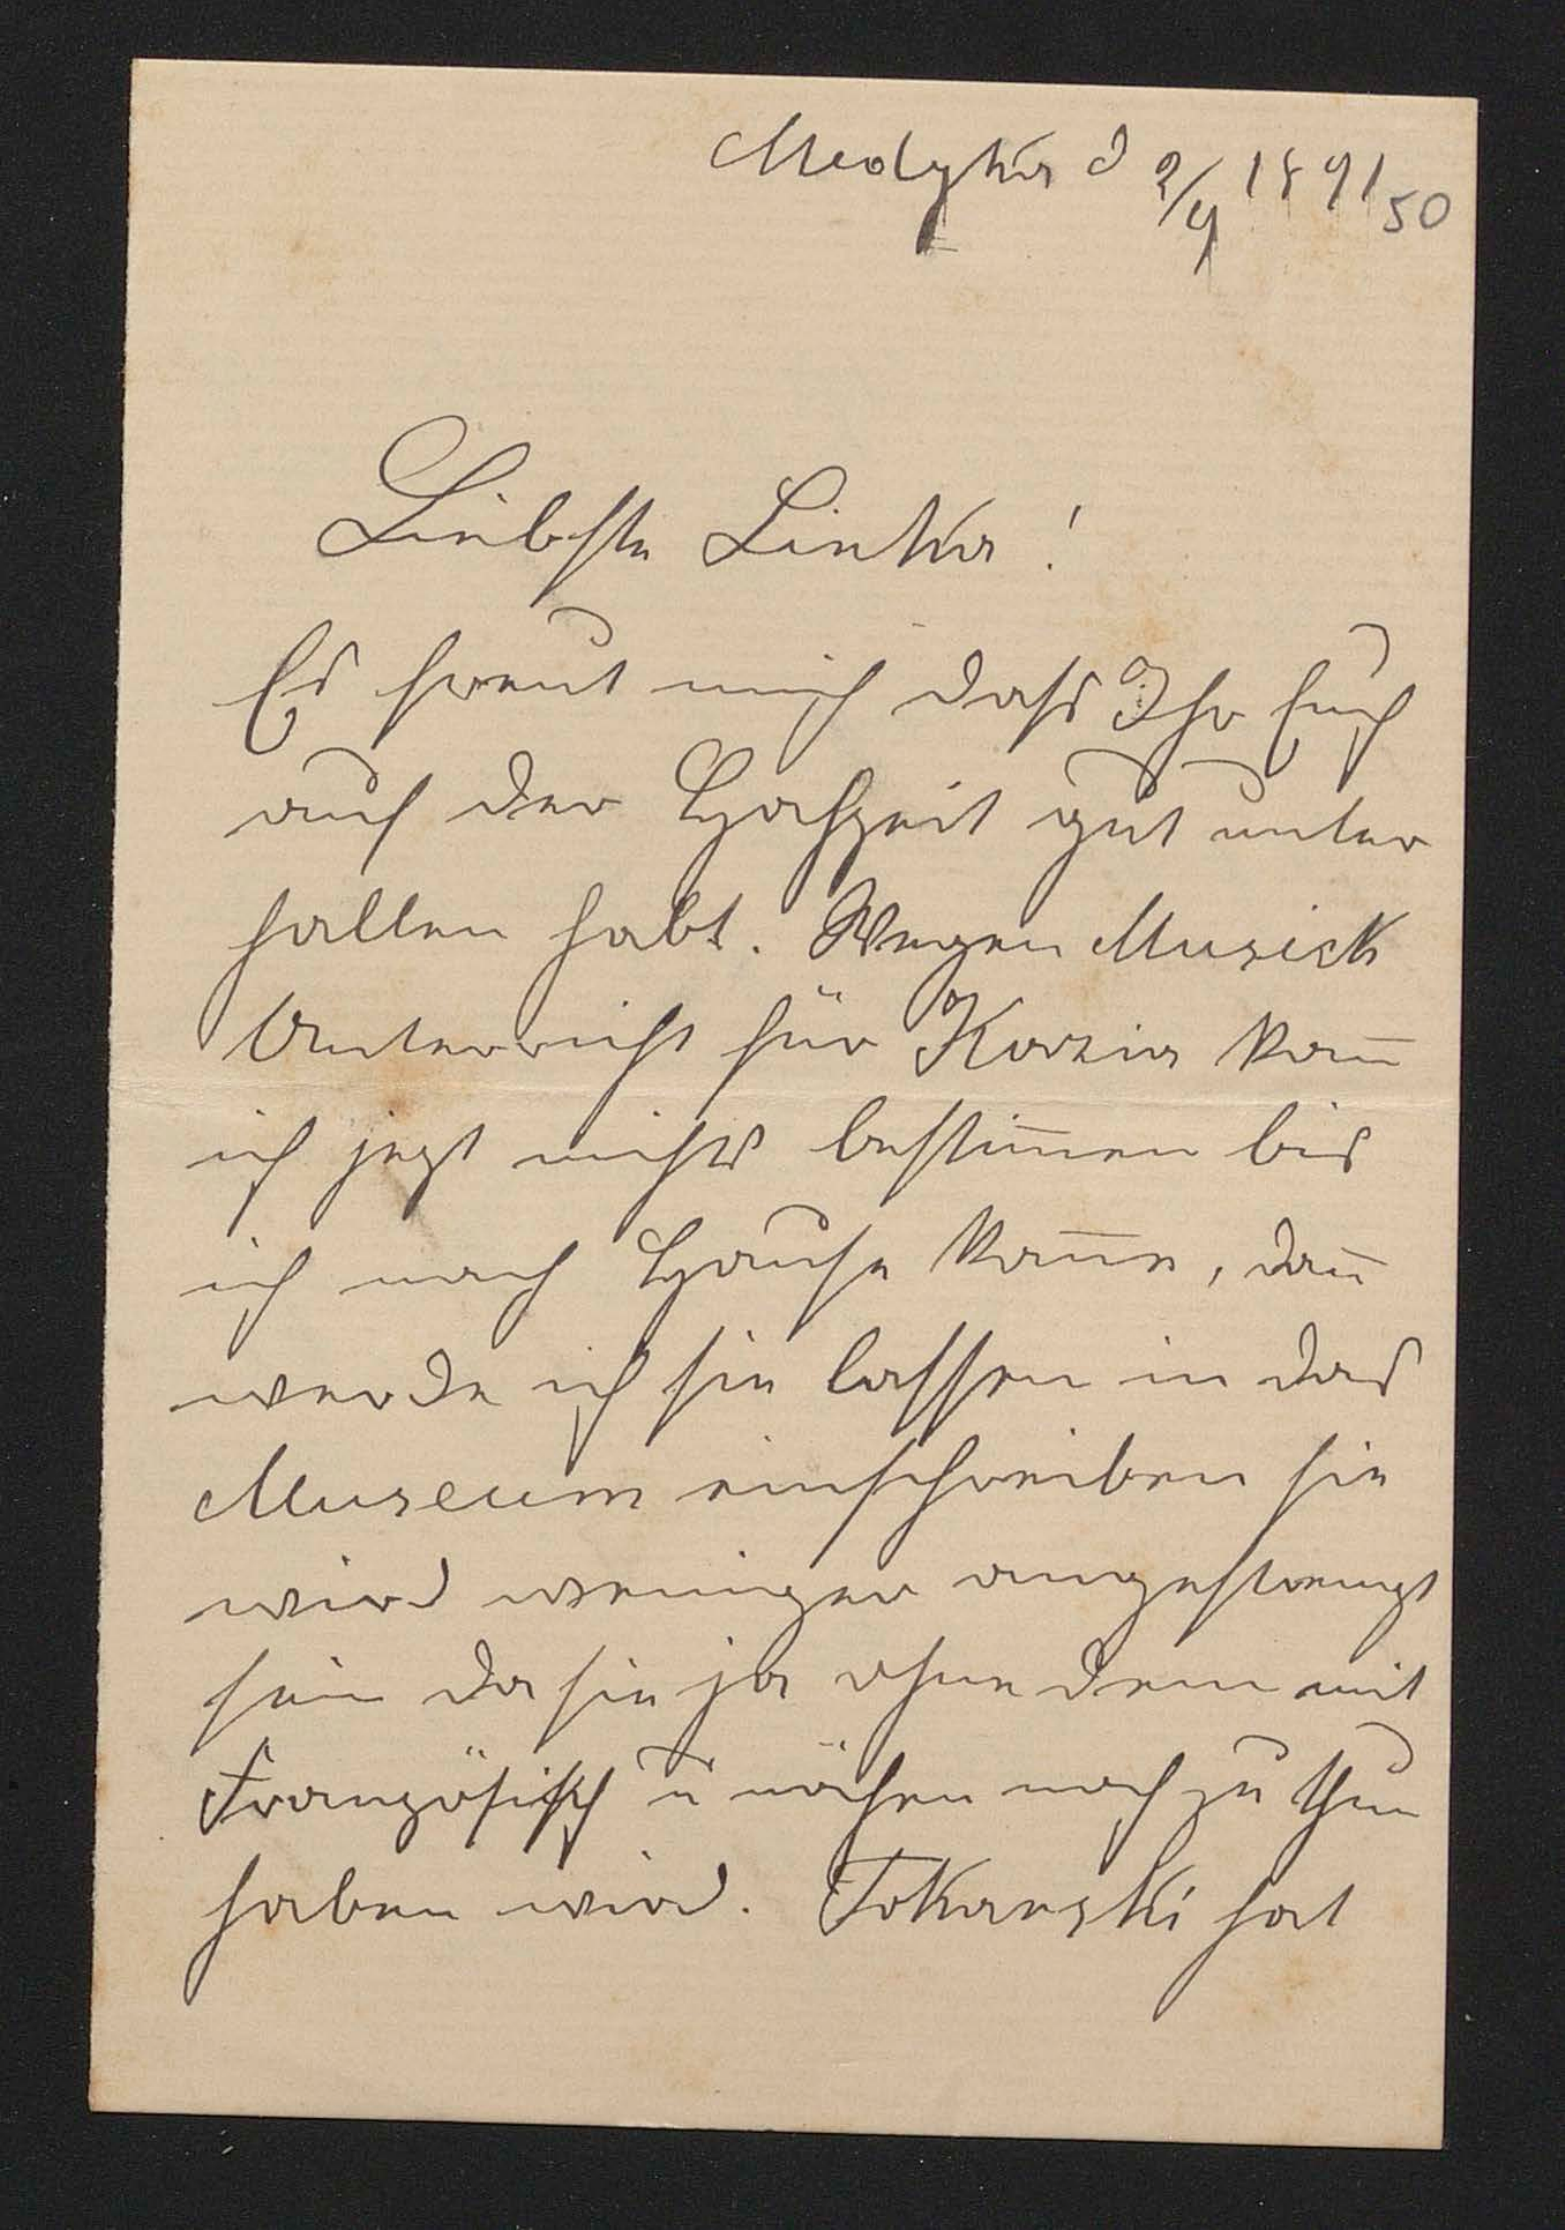 Medyka d 2/9 1891
50
Liebste Linka!
Es freut mich dass Ihr Euch
auf der Hochzeit gut unter
halten habt. Wegen Musick
Unterricht für Kazia kan̄
ich jezt nichts bestim̄en bis
ich nach Hause kom̄e, dan̄
werde ich sie lassen in das
Museum einschreiben sie
wird weniger angestrengt
sein da sie ja ohne dem mit
Französisch u nähen noch zu thun
haben wird. Tokarski hat